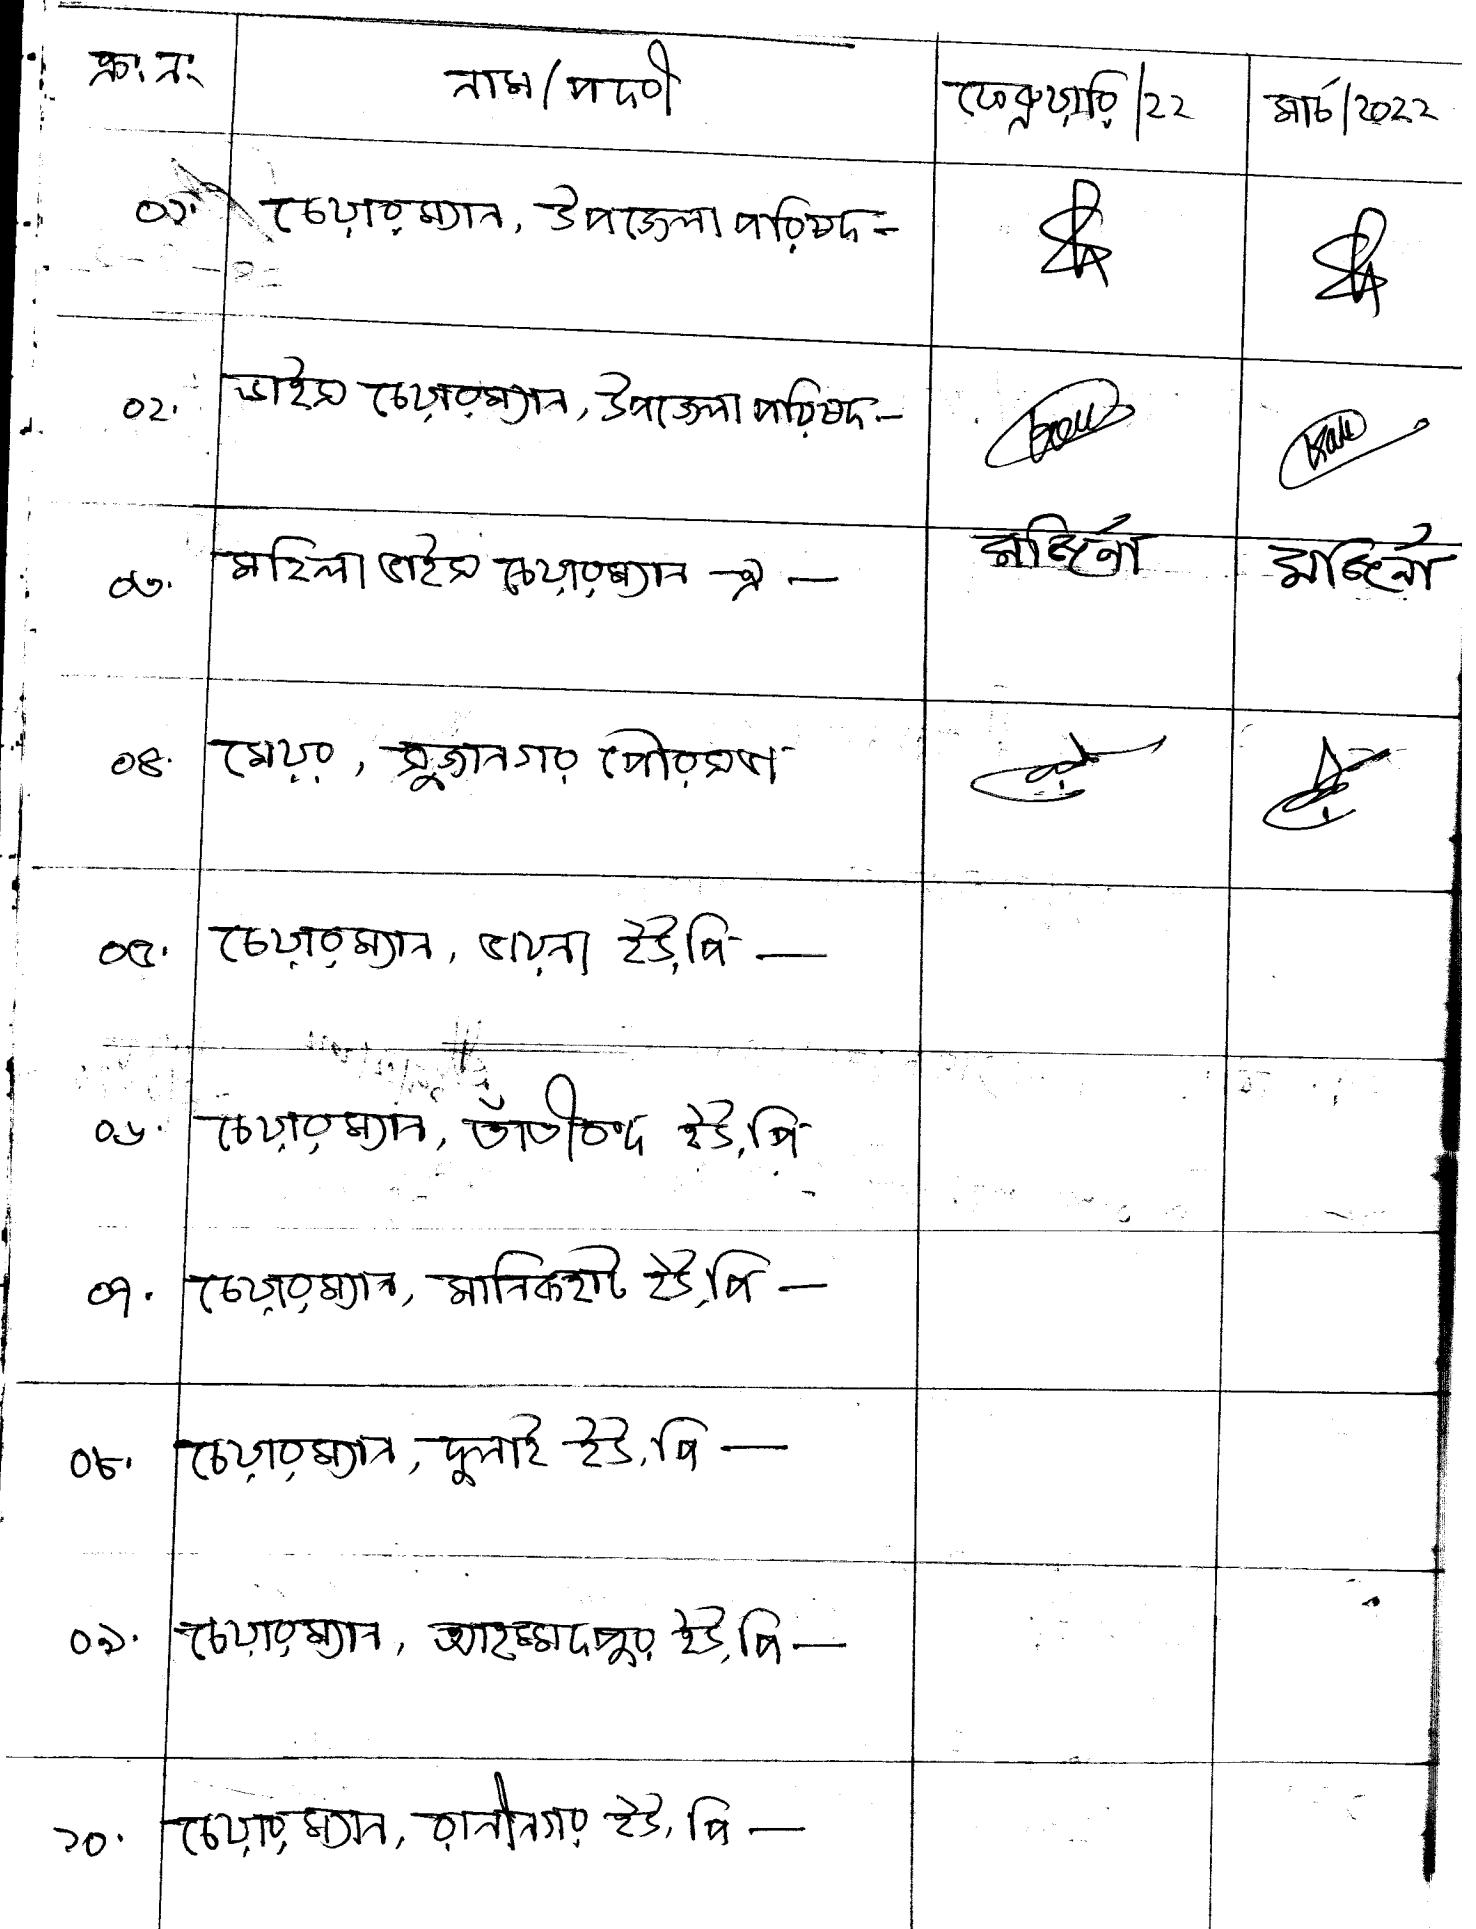 ক্রঃ নং নাম/পদবী ফেব্রুয়ারি/২২ মার্চ/২০২২
০১. চেয়ারম্যান, উপজেলা পরিষদ -
০২. ভাইস চেয়ারম্যান, উপজেলা পরিষদ -
০৩. মহিলা ভাইস চেয়ারম্যান - ঐ - মর্জিনা মর্জিনা
০৪. মেয়র, সুজানগর পৌরসভা
০৫. চেয়ারম্যান, ভায়না ইউ,পি —
০৬. চেয়ারম্যান, তাঁতীবন্দ ইউ,পি
০৭. চেয়ারম্যান, মানিকহাট ইউ,পি —
০৮. চেয়ারম্যান, দুলাই ইউ,পি —
০৯. চেয়ারম্যান, আহম্মদপুর ইউ,পি —
১০. চেয়ারম্যান, রানীনগর ইউ,পি —